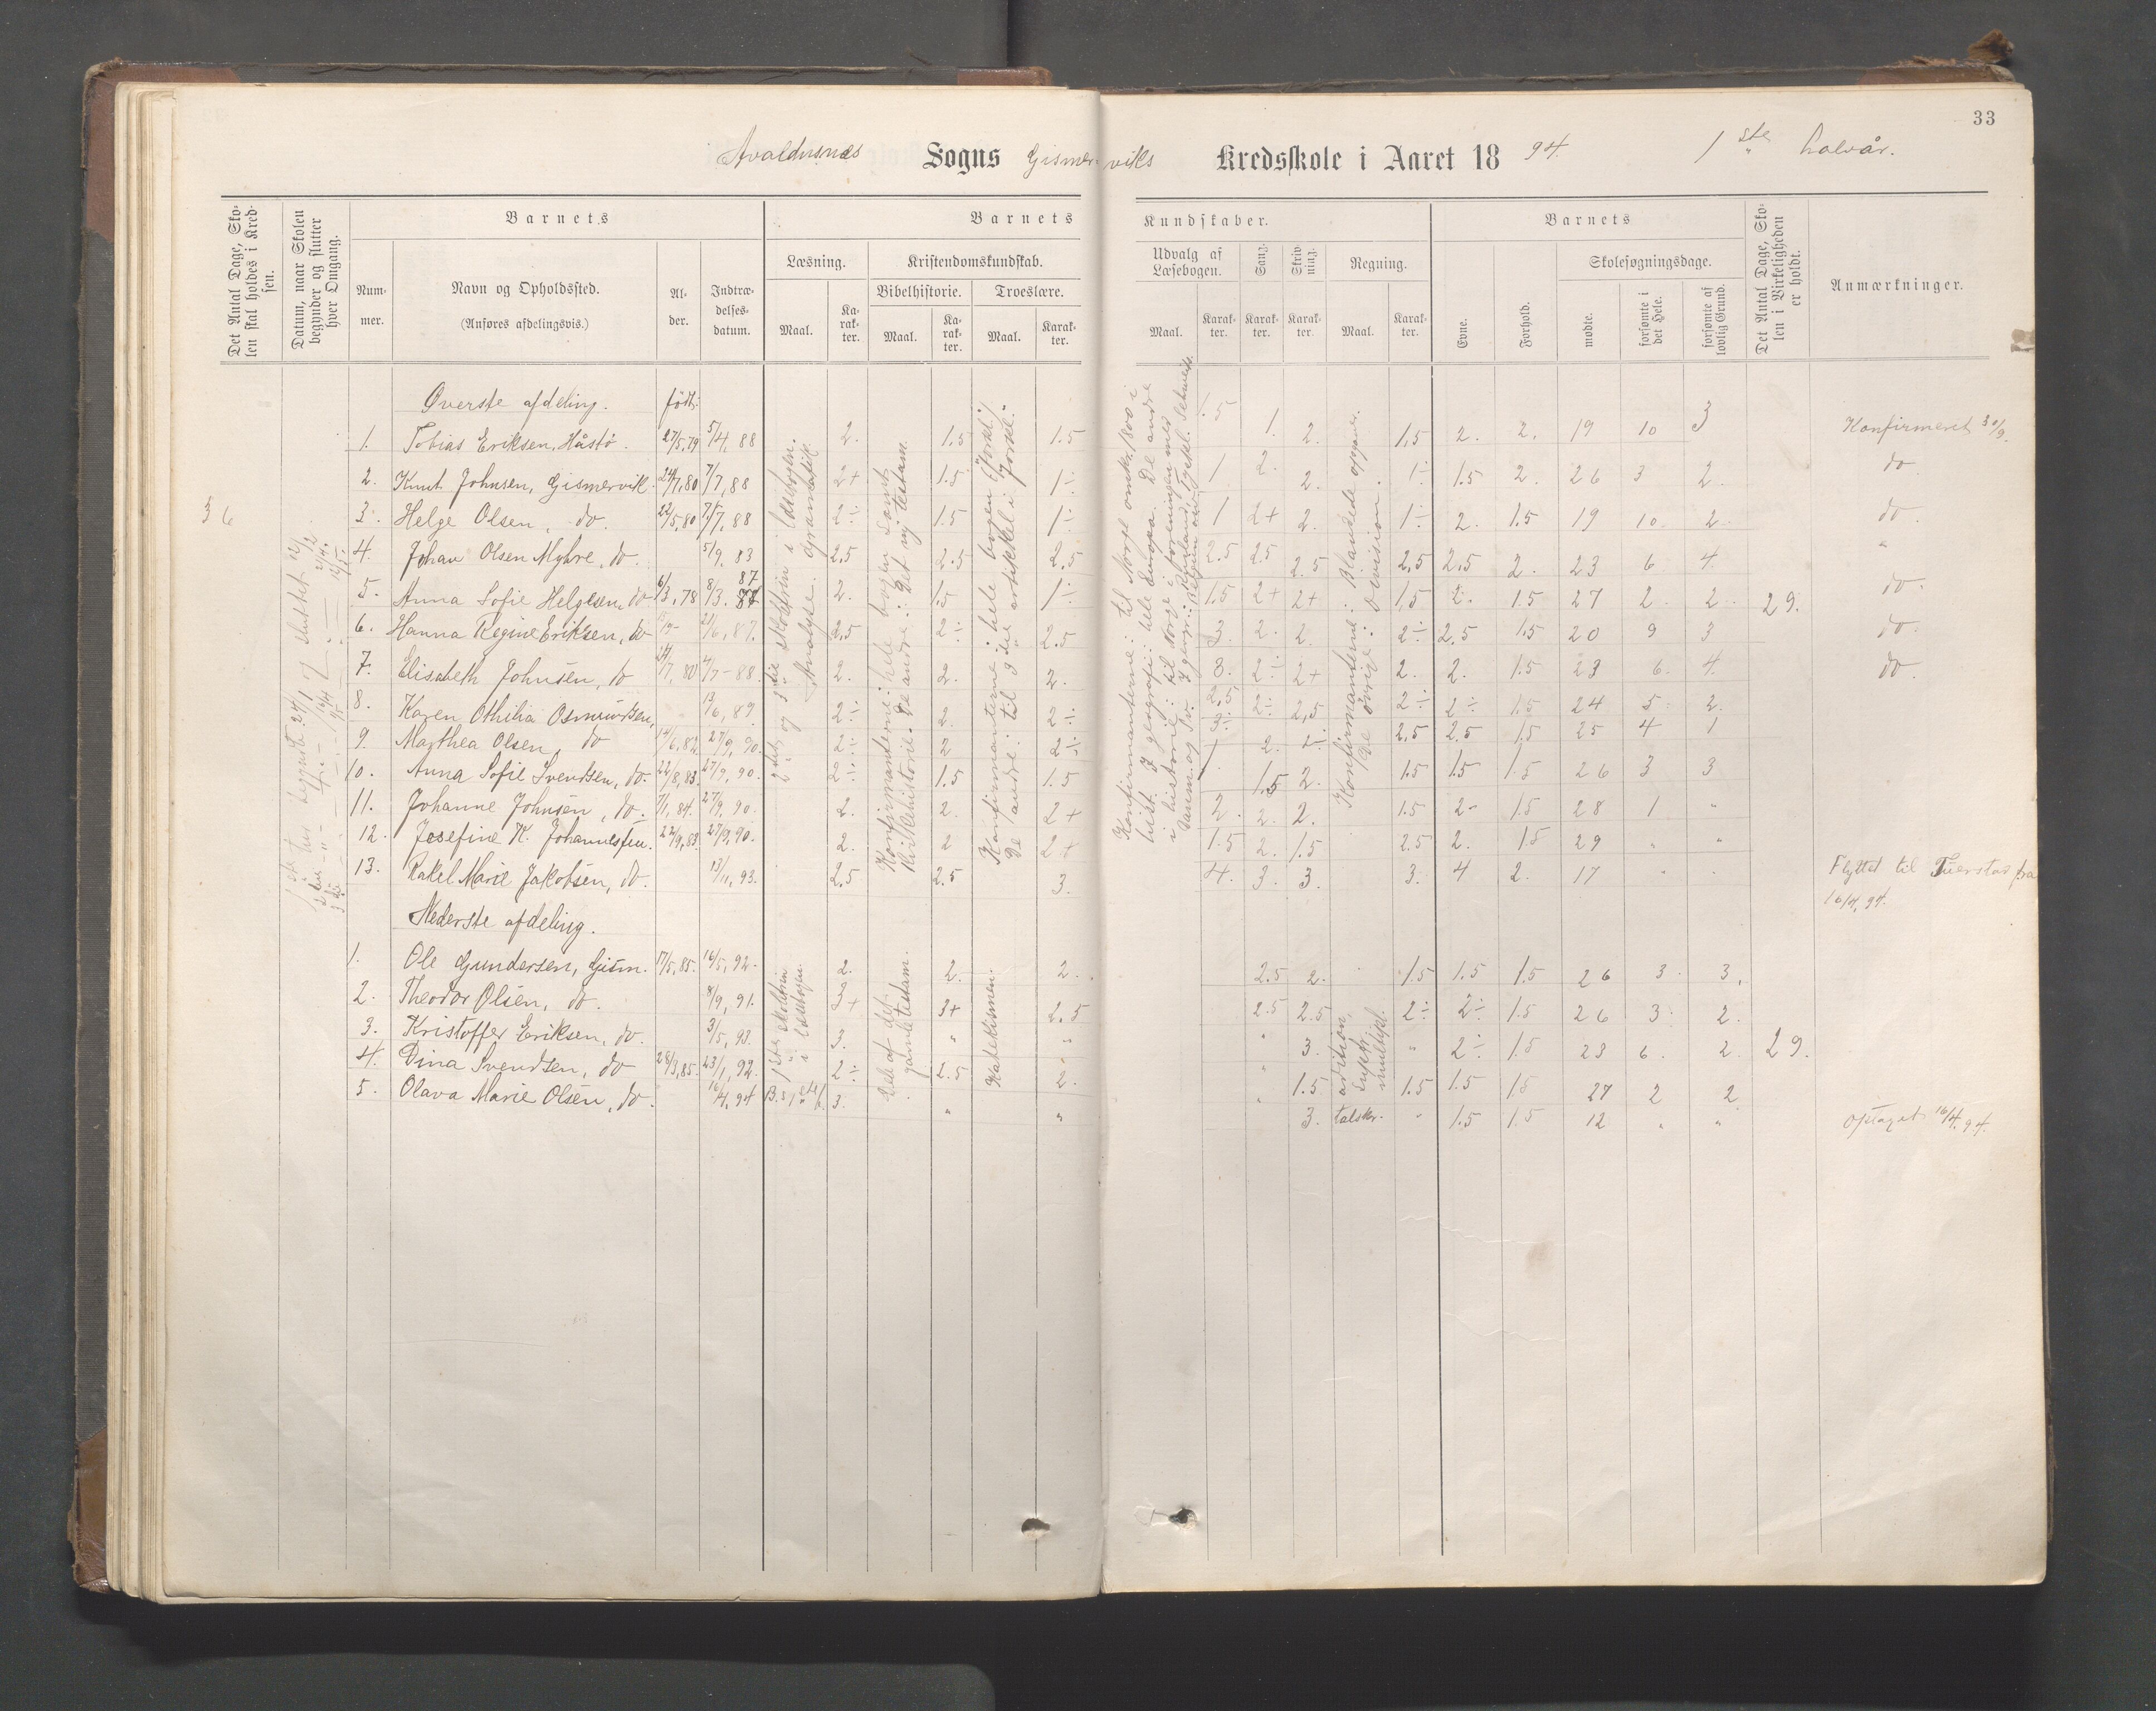 33
Avaldusnæs Sogns Gismerviks Kredsskole i Aaret 1894. 1ste halvår.
Det Antal Dage, Skolen skal holdes i Kredsen.
Datum, naar Skolen begynder og slutter hver Omgang.
Barnets
Nummer.
Navn og Opholdssted.
(Anføres afdelingsvis.)
Alder.
Indtrædelsesdatum.
Barnets Kundskaber.
Læsning.
Maal.
Karakter.
Kristendomskundskab.
Bibelhistorie.
Maal.
Karakter.
Troeslære.
Maal.
Karakter.
Udvalg af Læsebogen.
Maal.
Karakter.
Sang.
Karakter.
Skrivning.
Karakter.
Regning.
Maal.
Karakter.
Barnets
Evne.
Forhold.
Skolesøgningsdage.
mødte.
forsømte i det Hele.
forsømte af lovlig Grund.
Det Antal Dage, Skolen i Virkeligheden er holdt.
Anmærkninger.
36
Øverste afdeling. født:
1. Tobias Eriksen, Håstø. 27/5,79 5/4,88 2. 1.5 1.5 1.5 1. 2. 1,5 2. 2. 19 10 3 Konfirmeret 30/9.
2. Knut Johnsen, Gismervik. 24/7,80 7/7,88 2+ 1.5 1÷ 1 2. 2. 1÷ 1.5 2. 26 3 2. do.
3. Helge Olsen, do. 22/5,80 7/7,88 2÷ 1.5 1÷ 1 2+ 2. 1÷ 2. 1.5 19 10 2 do.
4. Johan Olsen Myhre, do. 5/9. 83 2,5 2.5 2.5 2.5 2.5 2.5 2,5 2.5 2. 23 6 4. "
5. Anna Sofie Helgesen, do 6/3,78 8/3. 87 2. 1.5 1÷ 1.5 2+ 2+ 1,5 2. 1.5 27 2. 2. 29. do.
6. Hanna Regine Eriksen, do 21/6, 87. 2,5 2÷ 2.5 3. 2. 2. 2÷ 2.5 1.5 20 9 3 do.
7. Elisabeth Johnsen, do 24/7, 80 4/7-88. 2. 2. 2. 3. 2÷ 2+ 2. 2. 1.5 23 6. 4. do.
8. Karen Othilia Osmundsen, 13/6, 89. 2÷ 2. 2÷ 2.5 2÷ 2,5 2÷ 2÷ 1.5 24 5 2.
9. Marthea Olsen, do 14/6,82 27/9, 90. 2÷ 2 2÷ 3÷ 2. 2÷ 2,5 2.5 1.5 25 4 1
10. Anna Sofie Svendsen, do. 22/8,83 27/9, 90. 2÷ 1.5 1.5 1 1.5 2. 1.5 1.5 1.5 26 3 3
11. Johanne Johnsen, do. 7/1, 84. 27/9, 90. 2. 2. 2+ 2. 2. 2. 1.5 2- 1.5 28 1 "
12. Josefine K. Johannessen. 22/9,83. 27/9,90. 2. 2 2+ 1.5 2. 1.5 2.5 2. 1.5 29 " "
13. Rakel Marie Jakobsen, do. 13/11, 93. 2,5 2.5 3. 4. 3. 3. 3. 4 2. 17 " " Flyttet til Tuerstad fra 16/4, 94.
2den og 3die skoletrin i læsebogen. Analyse. Gramatik.
Konfirmanterne: hele bogen samt Kirkehistorie. De andre: Det ny testam.
Konfirmanterne: hele bogen (forkl.) De andre: til 3die artikkel i "forkl."
Konfirmanterne: til Norge omkr. 1800 i hist. I geografi: hele Europa. De andre i historie: til Norge i foreningen med Danm. og Sv.
Konfirmanterne: Blandede opgaver. De øvrige: Division.
Nederste afdeling.
1. Ole Gundersen, Gism. 17/5,85. 16/5, 92. 2. 2. 2. 2.5 2. 1.5 1.5 1.5 26 3 3.
2. Theodor Olsen, do. 8/9, 91. 3+ 3+ 2.5 2.5 2.5 2÷ 2÷ 1.5 26 3 2.
3. Kristoffer Eriksen, do. 3/5, 93. 3. " " " 3. " 2÷ 1.5 23 6. 2. 29.
4. Dina Svendsen, do 28/3,85. 23/1, 92. 2÷ 2.5 2. " 1.5 1.5 1.5 1.5 27 2 2
5. Olava Marie Olsen, do. 16/4, 94 3. " " " 3. talskr. " 1.5 1.5 12 " " Optaget 16/4. 94.
1ste skoletrin i læsebogen.
Dele af det gamle testam.
Katekismen.
addition, subtr. multipl.